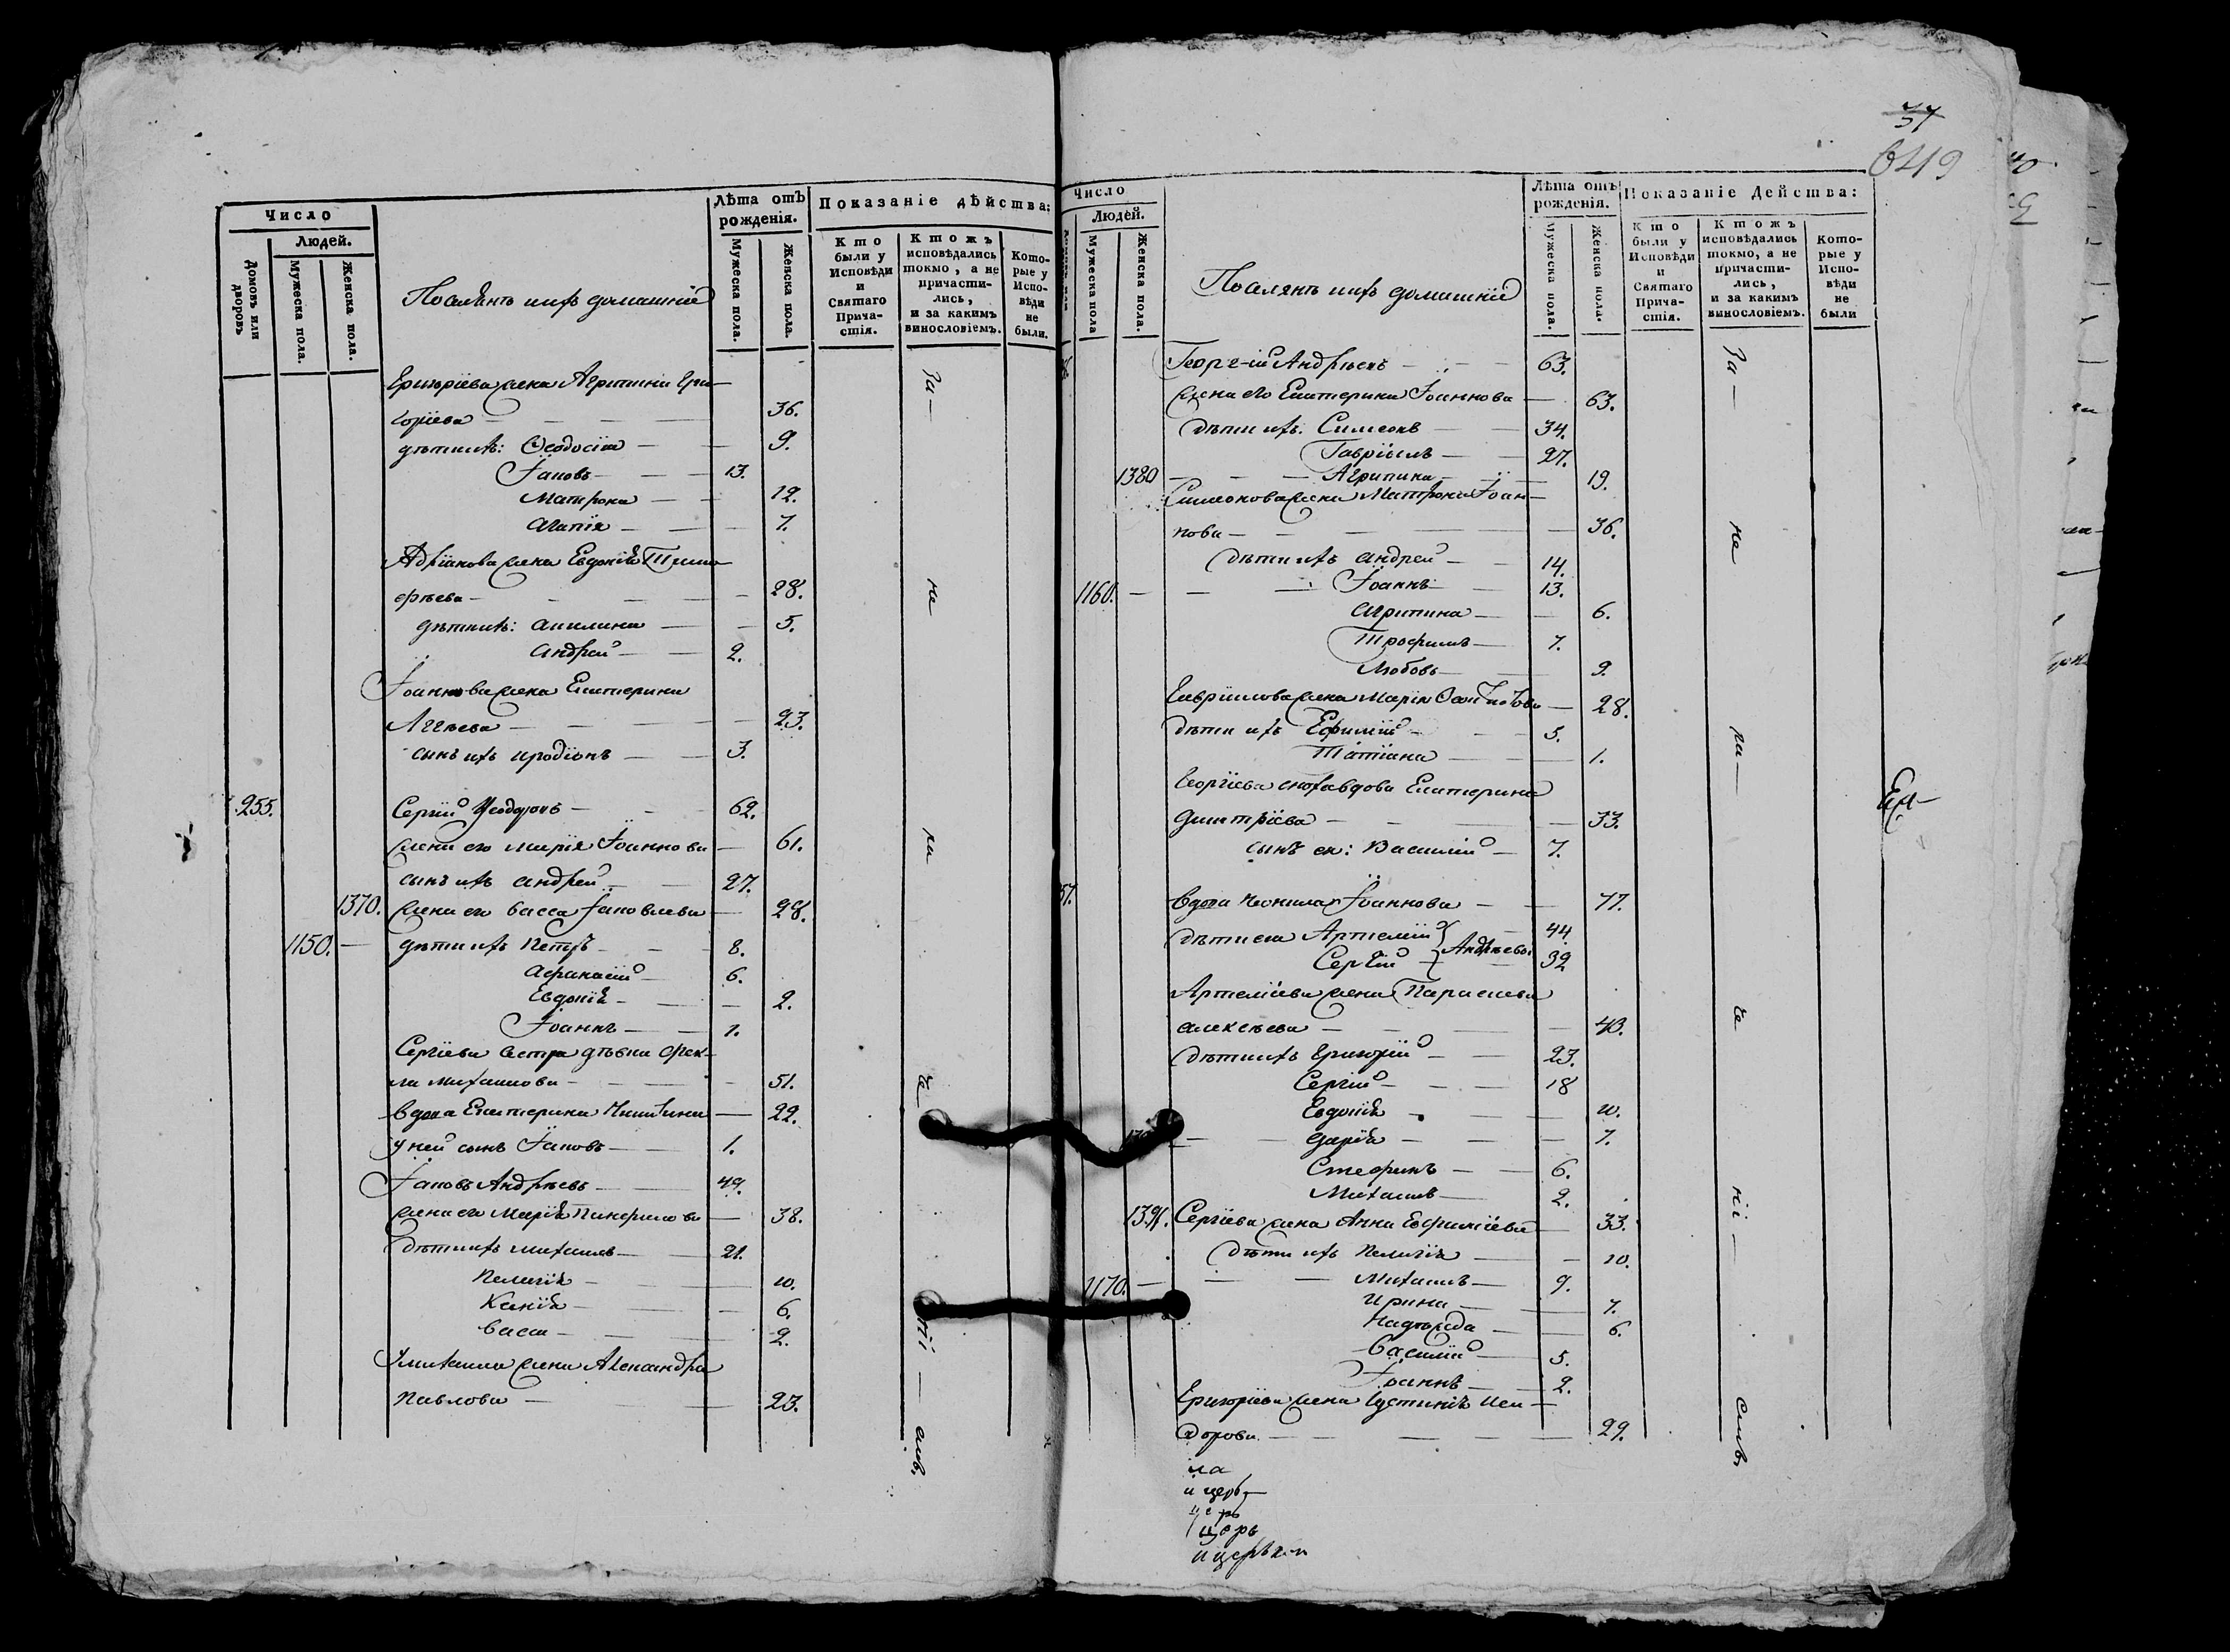 Число
Людей.
Домовъ или дворовъ
Мужеска пола.
Женска пола.
Поселянъ ихъ домашніи
Лѣта отъ рожденія.
Мужеска пола.
Женска пола.
Показаніе дѣйства:
Кто были у Исповѣди и Святаго Причастія.
Ктожъ исповѣдались токмо, а не причастились, и за какимъ винословіемъ.
Которые у Исповѣди не были.
Григоріева жена Агрипина Гри—
горіева — 36.
дѣти ихъ: Ѳеодосія — 9.
Іаковъ — 13.
Матрона — 12.
Агапія — 7.
Адріанова жена Евдокія Тимо
фѣева — 28.
дѣти ихъ: Акилина — 5.
Андрей — 2.
Іоаннова жена Екатерина
Аггѣева — 23.
сынъ ихъ Иродіонъ — 3.
255. Сергій Ѳеодоровъ — 62.
жена его Марія Іоаннова — 61.
сынъ ихъ Андрей — 27.
1370. жена его Васса Іаковлева — 28.
1150. — дѣти ихъ Петръ — 8.
Афанасій — 6.
Евдокія — 2.
Іоаннъ — 1.
Сергіева сестра дѣвка Фек—
ла Михаилова — 51.
вдова Екатерина — 22.
у ней сынъ Іаковъ — 1.
Іаковъ Андрѣевъ — 49.
жена его Марія Панфилова — 38.
дѣти ихъ Михаилъ — 21.
Пелагія — 10.
Ксенія — 6.
Васса — 2.
Михаила жена Александра
Павлова — 23.
За— не ра че ніі — емъ.
37
649
Число
Людей.
Мужеска пола
Женска пола.
Поселянъ ихъ домашніи
Лѣта отъ рожденія.
Мужеска пола.
Женска пола.
Показаніе Действа:
Кто были у Исповѣди и Святаго Причастія.
Ктожъ исповѣдались токмо, а не причастились, и за какимъ винословіемъ.
Которые у Исповѣди не были
Георгій Андрѣевъ — 63.
жена его Екатерина Іоаннова — 63.
дѣти ихъ: Симеонъ — 34.
Гавріилъ — 27.
1380 — Агрипина — 19.
Симеонова жена Матрона Іоан—
нова — 36.
дѣти ихъ Андрей — 14.
1160. — Іоаннъ — 13.
Агрипина — 6.
Трофимъ — 7.
Любовь — 9.
Гавріилова жена Марія — 28.
дѣти ихъ Ефимій — 5.
Татіана — 1.
Георгіева сноха вдова Екатерина
Димитріева — 33.
сынъ ея: Василій — 7.
57. вдова Неонила Іоаннова — 77.
дѣти ея Артемій } Андрѣевы 44
Сергій } 32
Артеміева жена Параскева
Алексѣева — 40.
дѣти ихъ Григорій — 23.
Сергій — 18
Евдокія — 10.
Дарія — 7.
Стефанъ — 6.
Михаилъ — 2.
Сергіева жена Анна Евфиміева — 33.
дѣти ихъ Пелагія — 10.
1170. — Михаилъ — 9.
Ирина — 7.
Надѣжда — 6.
Василій — 5.
Іоаннъ — 2.
Григоріева жена Іустинія Иси—
дорова. — 29.
За— не ра— че ніі— емъ.
ла
и церь—
церь
церь